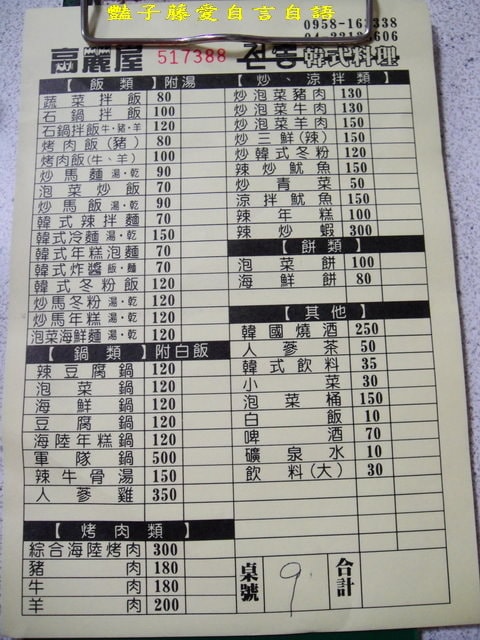 豔子藤愛自言自語
0958-161338
高麗屋 517388 전통 韓式料理
【飯類】附湯
蔬菜拌飯 80
石鍋拌飯 100
石鍋拌飯牛·豬·羊 120
烤肉飯(豬) 80
烤肉飯(牛、羊) 100
炒馬麵湯·乾 90
泡菜炒飯 70
炒馬飯湯·乾 90
韓式辣拌麵 70
韓式冷麵湯·乾 150
韓式年糕泡麵 70
韓式炸醬飯·麵 70
韓式冬粉飯 120
炒馬冬粉湯·乾 120
炒馬年糕湯·乾 120
泡菜海鮮麵湯·乾 120
【鍋類】附白飯
辣豆腐鍋 120
泡菜鍋 120
海鮮鍋 120
豆腐鍋 120
海陸年糕鍋 120
軍隊鍋 500
辣牛骨湯 150
人蔘雞 350
【烤肉類】
綜合海陸烤肉 300
豬肉 180
牛肉 180
羊肉 200
【炒、涼拌類】
炒泡菜豬肉 130
炒泡菜牛肉 130
炒泡菜羊肉 150
炒三鮮(辣) 150
炒韓式冬粉 120
辣炒魷魚 150
炒青菜 50
涼拌魷魚 150
辣年糕 100
辣炒蝦 300
【餅類】
泡菜餅 100
海鮮餅 80
【其他】
韓國燒酒 250
人蔘茶 50
韓式飲料 35
小菜 30
泡菜桶 150
白飯 10
啤酒 70
礦泉水 10
飲料(大) 30
桌號 9 合計